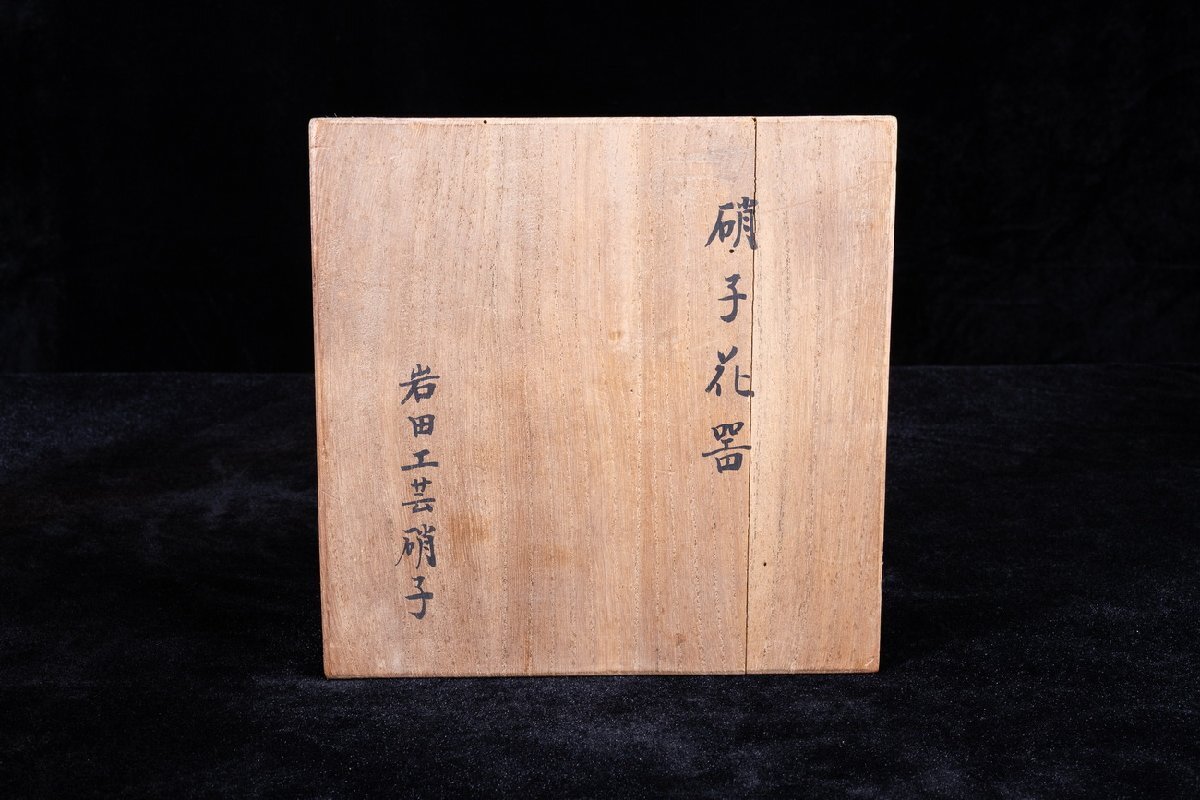 硝子花器
岩田工芸硝子